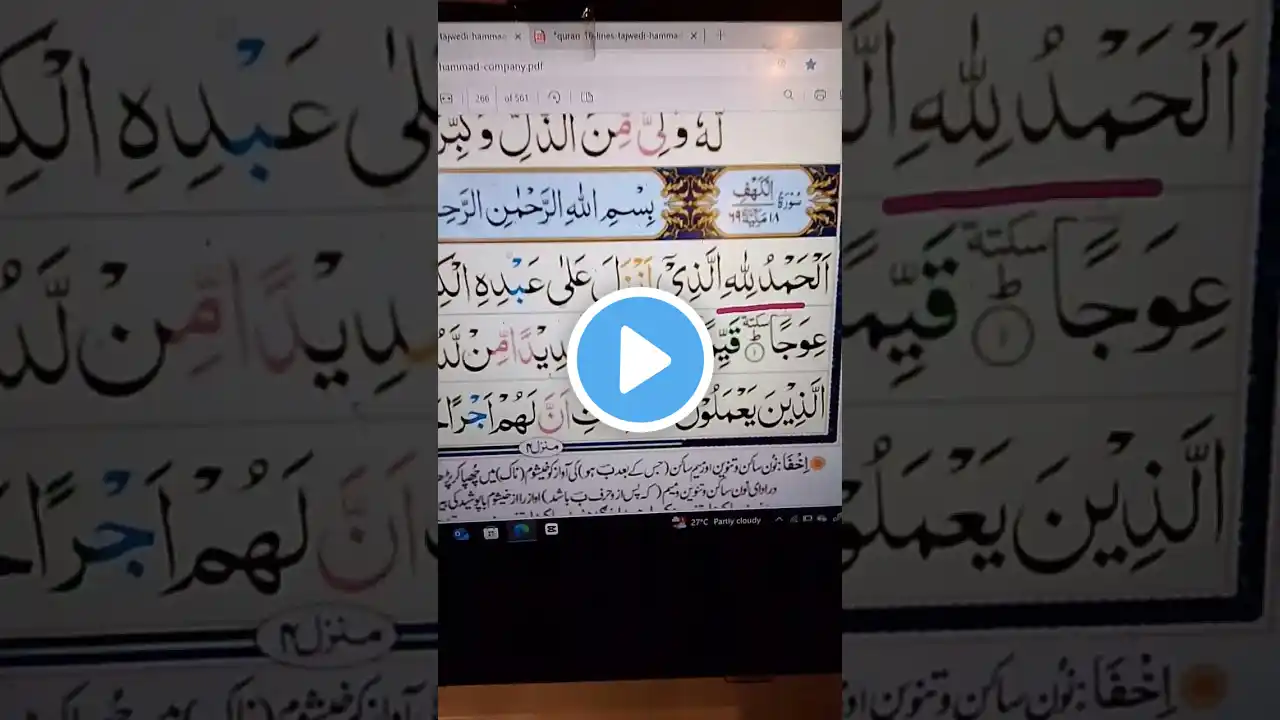 tajwedi-hamma
"quran_16-lines-tajwedi-hamma
hammad-company.pdf
266 of 561
لَّهٗ وَلِىٌّ مِّنَ الذُّلِّ وَكَبِّرْ
سُوْرَةُ الْكَهْفِ ١٨ مَكِّيَّةٌ ٦٩
بِسْمِ اللّٰهِ الرَّحْمٰنِ الرَّحِ
اَلْحَمْدُ لِلّٰهِ الَّذِىْٓ اَنْزَلَ عَلٰى عَبْدِهِ الْكِ
عِوَجًا ١ سكتة قَيِّمً دِيْدًا مِّنْ لَّدُ
الَّذِيْنَ يَعْمَلُوْنَ تِ اَنَّ لَهُمْ اَجْرًا حَ
منزل ۴
اِخْفَا: نُون ساکن و تنوین اور میم ساکن (جس کے بعد ب ہو) کی آواز کو خیشوم (ناک) میں چھپا کر پڑھ
در ادای نون ساکن و تنوین و میم (که پس از و حرف ب باشد) آواز را از خیشوم با پوشیدگی
27°C Partly cloudy